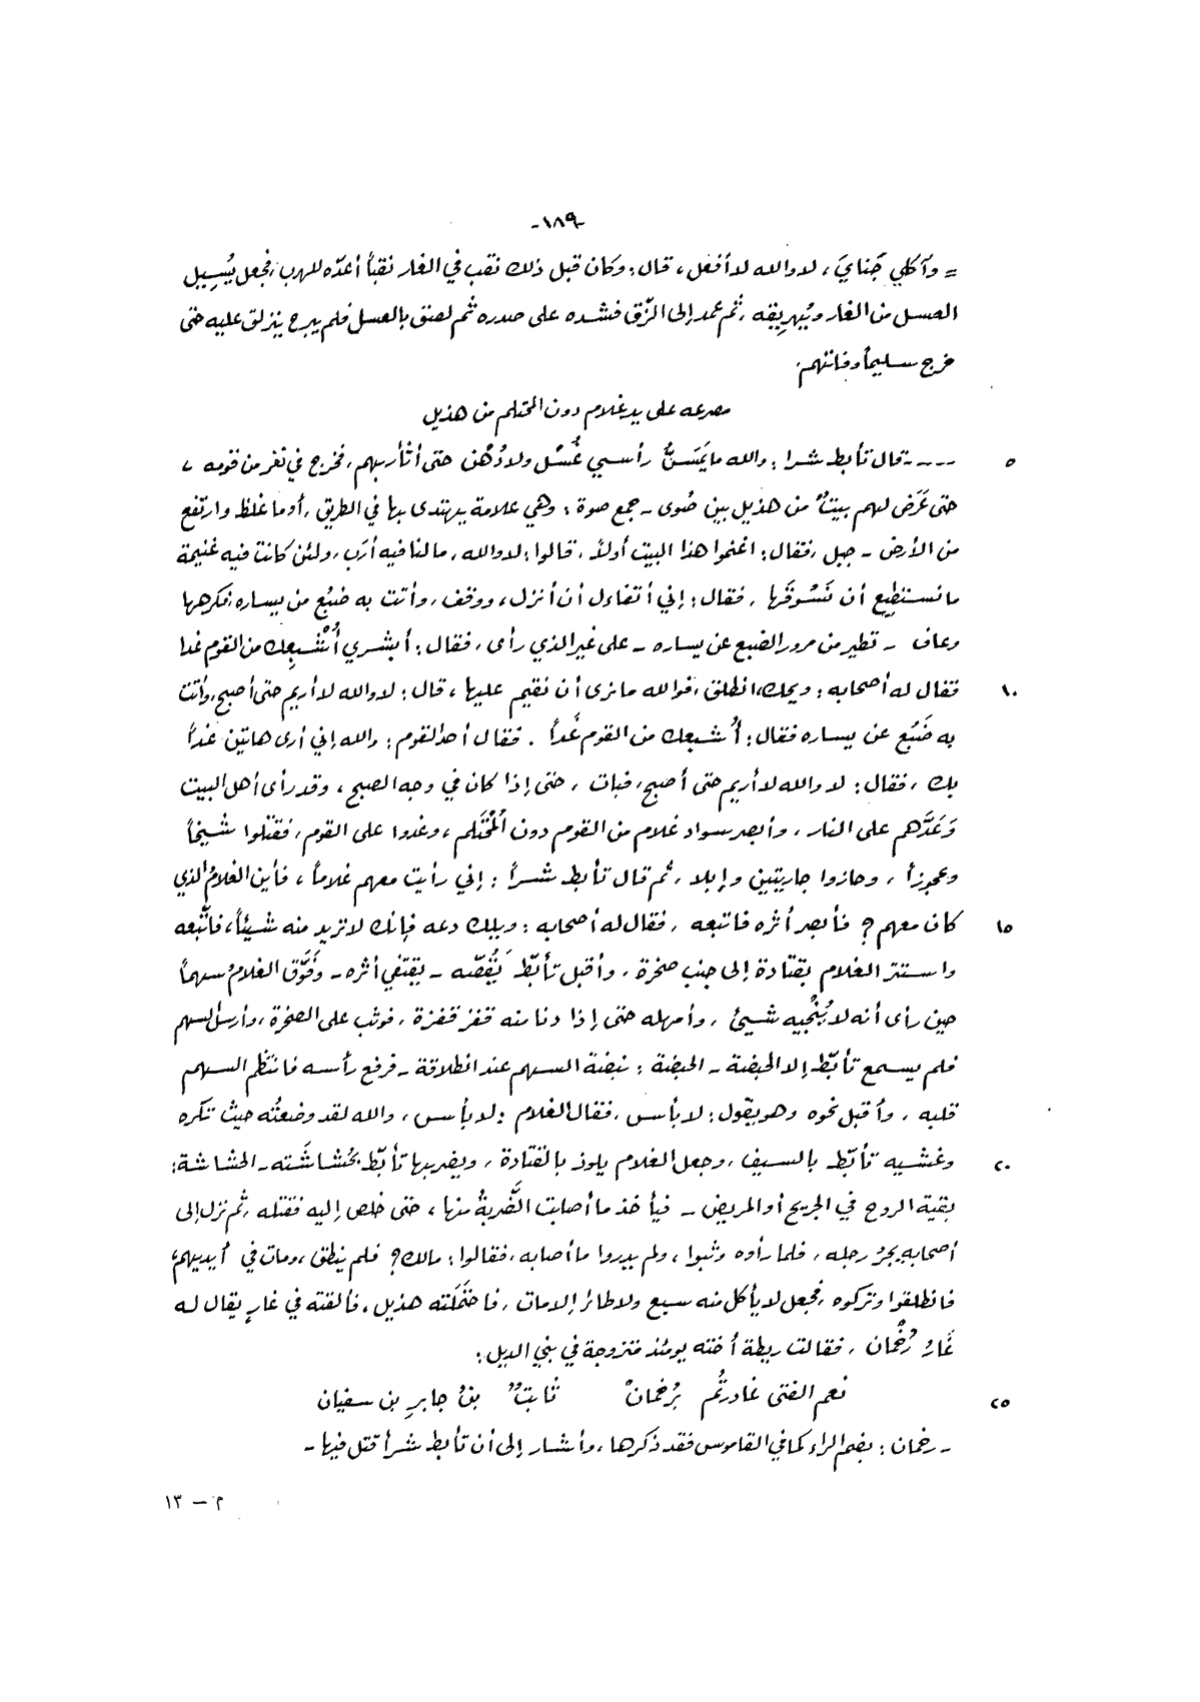 -١٨٩-
= وآكلي جَنايَ، لا والله لا أفعل، قال: وكان قبل ذلك نقب في الغار نقباً أعدّه للهرب، فجعل يُسِيل
العسل من الغار ويُهرِيقه، ثم عمد إلى الزّق فشده على صدره ثم لصق بالعسل فلم يبرح ينزلق عليه حتى
خرج سليماً وفاتهم.
مصرعه على يد غلام دون المحتلم من هذيل
٥ ---- قال تأبط شرا: والله ما يَمَسَنُّ رأسي غُسْل ولا دُهْن حتى أثأر بهم، فخرج في نفر من قومه،
حتى عَرَض لهم بيتٌ من هذيل بين صُوى - جمع صوة: وهي علامة يهتدى بها في الطريق، أو ما غلظ وارتفع
من الأرض - جبل، فقال: اغنموا هذا البيت أولاً، قالوا: لا والله، ما لنا فيه أرَب، ولئن كانت فيه غنيمة
ما نستطيع أن نَسُوقَها، فقال: إني أتفاءل أن أنزل، ووقف، وأتت به ضبُع من يساره، فكرهها
وعاف - تطير من مرور الضبع عن يساره - على غير الذي رأى، فقال: أبشري أُشْبِعك من القوم غدا
١٠ فقال له أصحابه: ويحك، انطلق، فوالله ما نرى أن نقيم عليها، قال: لا والله لا أريم حتى أصبح، وأتت
به ضَبُع عن يساره فقال: أُشبعك من القوم غداً. فقال أحد القوم: والله إني أرى هاتين غداً
بك، فقال: لا والله لا أريم حتى أصبح، فبات، حتى إذا كان في وجه الصبح، وقد رأى أهل البيت
وَعَدَّهم على النار، وأبصر سواد غلام من القوم دون المُحْتَلم، وغدوا على القوم، فقتلوا شيخاً
وعجوزاً، وحازوا جاريتين وإبلا، ثم قال تأبط شراً: إني رأيت معهم غلاماً، فأين الغلامُ الذي
١٥ كان معهم؟ فأبصر أثره فاتبعه، فقال له أصحابه: ويلك دعه فإنك لا تريد منه شيئاً، فاتّبعه
واستتر الغلام بقتادة إلى جنب صخرة، وأقبل تأبّط يَقُصّه - يقتفي أثره - وفَوَّق الغلامُ سهماً
حين رأى أنه لا يُنْجيه شيئ، وأمهله حتى إذا دنا منه قفز قفزة، فوثب على الصخرة، وأرسل السهم
فلم يسمع تأبّط إلا الحبضة - الحبضة: نبضة السهم عند انطلاقة - فرفع رأسه فانتظم السهم
قلبه، وأقبل نحوه وهو يقول: لا بأس، فقال الغلام: لا بأس، والله لقد وضعتُه حيث تكره
٢٠ وغشيه تأبّط بالسيف، وجعل الغلام يلوذ بالقتادة، ويضربها تأبّط بحُشاشَته - الحشاشة:
بقية الروح في الجريح أو المريض - فيأخذ ما أصابت الضَّربةُ منها، حتى خلص إليه فقتله، ثم نزل إلى
أصحابه يجرُ رجله، فلما رأوه وثبوا، ولم يدروا ما أصابه، فقالوا: مالك؟ فلم ينطق، ومات في أيديهم،
فانطلقوا وتركوه، فجعل لا يأكل منه سبع ولا طائر إلا مات، فاحتَمَلَته هذيل، فألقته في غارٍ يقال له
غَارُ رُخْمان، فقالت ريطة أخته يومئذ متزوجة في بني الديل:
٢٥ نعم الفتى غادرتُم بُرخمانْ ثابتٌ بنُ جابرِ بن سفيان
- رخمان: بضم الراء كما في القاموس فقد ذكرها، وأشار إلى أن تأبط شراً قتل فيها -
م - ١٣